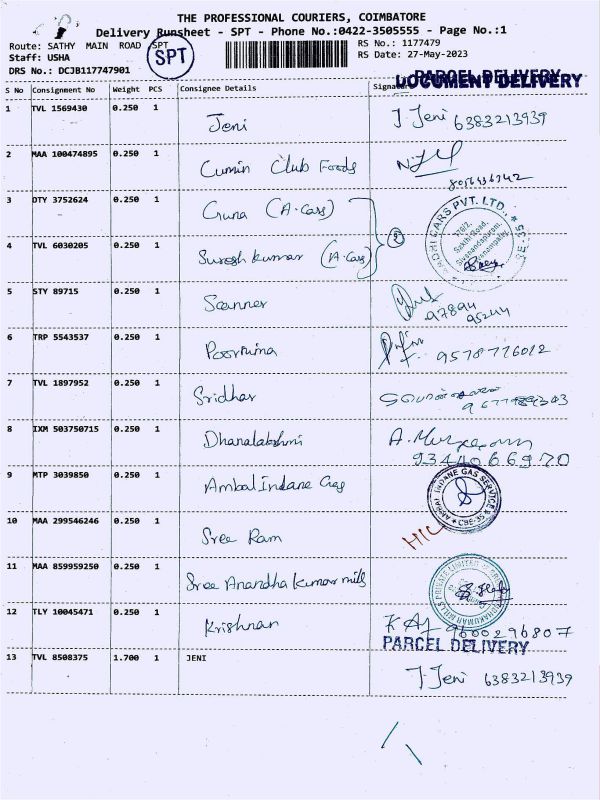 THE PROFESSIONAL COURIERS, COIMBATORE
Delivery Runsheet - SPT - Phone No.:0422-3505555 - Page No.:1
Route: SATHY MAIN ROAD SPT
RS No.: 1177479
Staff: USHA
SPT
RS Date: 27-May-2023
DRS No.: DCJB117747901
PARCEL DELIVERY
DOCUMENT DELIVERY
S No Consignment No Weight PCS Consignee Details Signature
1 TVL 1569430 0.250 1 Jeni J Jeni 6383213939
2 MAA 100474895 0.250 1 Cumin Club Foods
3 DTY 3752624 0.250 1 Guna (A-Cars)
4 TVL 6030205 0.250 1 Suresh kumar (A-Cars) 2
CARS PVT. LTD.
5 STY 89715 0.250 1 Scanner
97894
95244
6 TRP 5543537 0.250 1 Poornima 9578776012
7 TVL 1897952 0.250 1 Sridhar
8 IXM 503750715 0.250 1 Dhanalakshmi
9344066970
9 MTP 3039850 0.250 1 Ambal Indane Gas
AMBAL INDANE GAS SERVICE
CBE-35
10 MAA 299546246 0.250 1 Sree Ram H/C
11 MAA 859959250 0.250 1 Sree Anandha kumar mills
12 TLY 10045471 0.250 1 Krishnan 9600296807
PARCEL DELIVERY
13 TVL 8508375 1.700 1 JENI J Jeni 6383213939